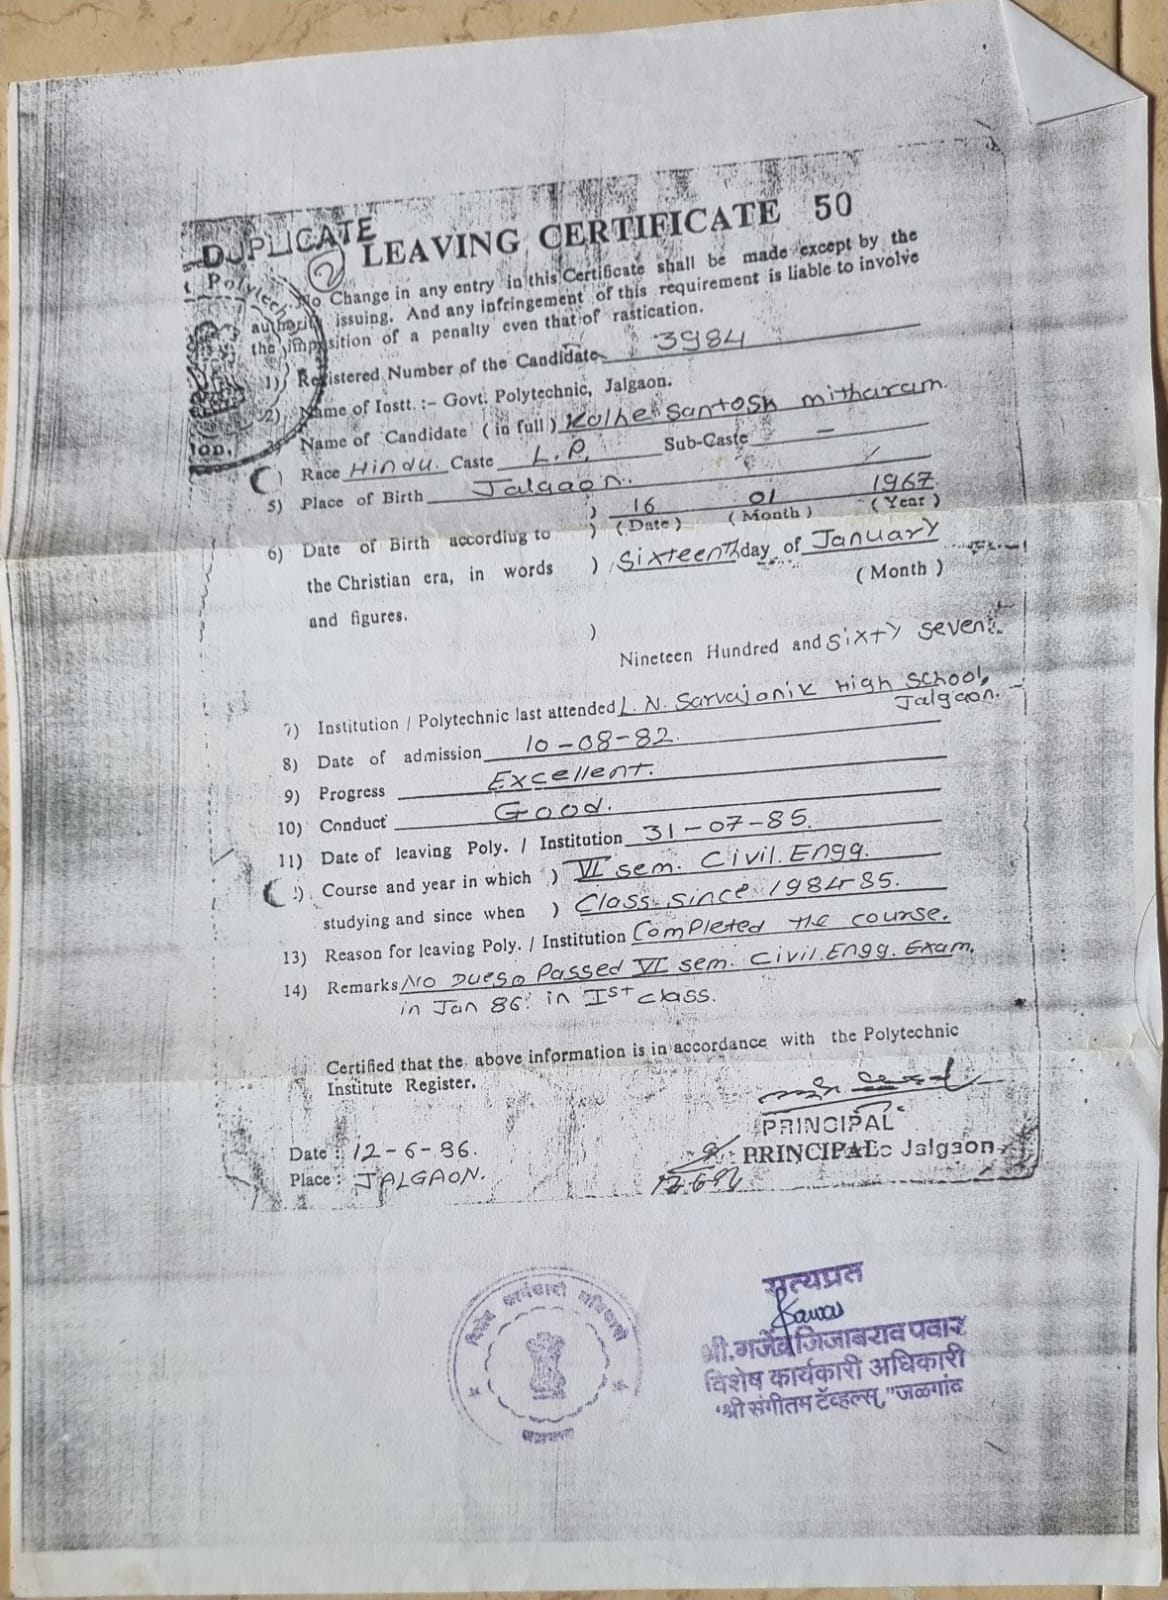 DUPLICATE
LEAVING CERTIFICATE 50
2
Polytechnic
No Change in any entry in this Certificate shall be made except by the
authority issuing. And any infringement of this requirement is liable to involve
the imposition of a penalty even that of rastication.
1) Registered Number of the Candidate 3984
2) Name of Instt. :- Govt. Polytechnic, Jalgaon.
Name of Candidate ( in full ) Kolhe Santosh mitharam.
) Race Hindu. Caste L.P. Sub-Caste —
5) Place of Birth Jalgaon.
6) Date of Birth according to ) 16 01 1967
( Date ) ( Month ) ( Year )
the Christian era, in words ) Sixteenth day of January
( Month )
and figures.
) Nineteen Hundred and sixty seven.
7) Institution / Polytechnic last attended L. N. Sarvajanik High School,
Jalgaon.
8) Date of admission 10-08-82.
9) Progress Excellent.
10) Conduct Good.
11) Date of leaving Poly. / Institution 31-07-85.
) Course and year in which ) VI sem. Civil. Engg.
studying and since when ) Class since 1984-85.
13) Reason for leaving Poly. / Institution Completed the course.
14) Remarks No Dues. Passed VI sem. Civil. Engg. Exam.
in Jan 86. in Ist class.
Certified that the above information is in accordance with the Polytechnic
Institute Register.
PRINCIPAL
PRINCIPAL Jalgaon
Date : 12-6-86.
Place : JALGAON.
विशेष कार्यकारी अधिकारी
सत्यप्रत
श्री.गजेंद्र जिजाबराव पवार
विशेष कार्यकारी अधिकारी
"श्री संगीतम टॅव्हल्स्," जळगांव